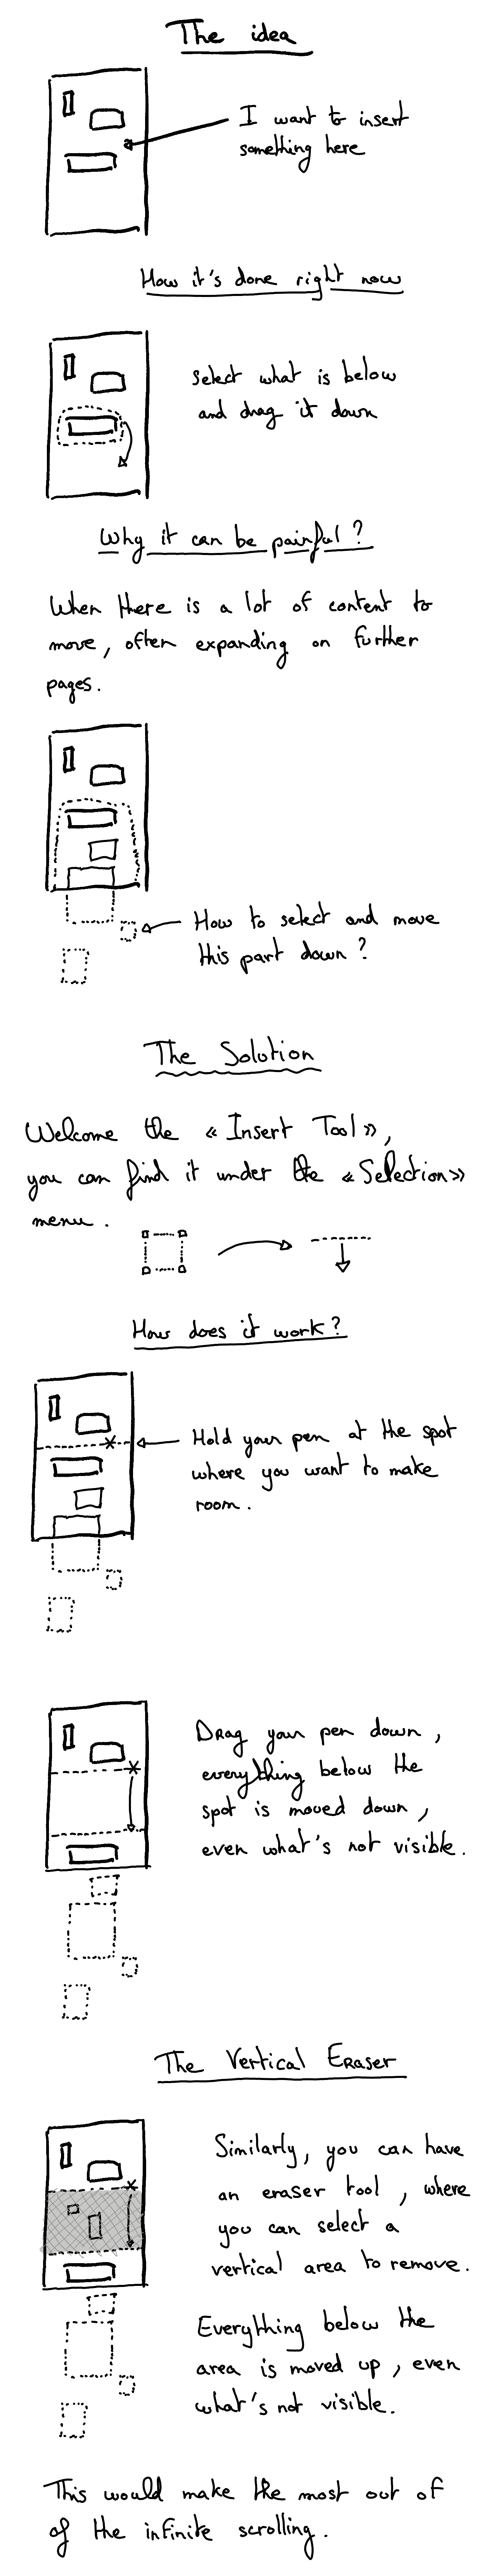 The idea
I want to insert
something here
How it's done right now
Select what is below
and drag it down
Why it can be painful?
When there is a lot of content to
move, often expanding on further
pages.
How to select and move
this part down?
The Solution
Welcome the « Insert Tool »,
you can find it under the « Selection »
menu.
How does it work?
Hold your pen at the spot
where you want to make
room.
Drag your pen down,
everything below the
spot is moved down,
even what's not visible.
The Vertical Eraser
Similarly, you can have
an eraser tool, where
you can select a
vertical area to remove.
Everything below the
area is moved up, even
what's not visible.
This would make the most out of
of the infinite scrolling.